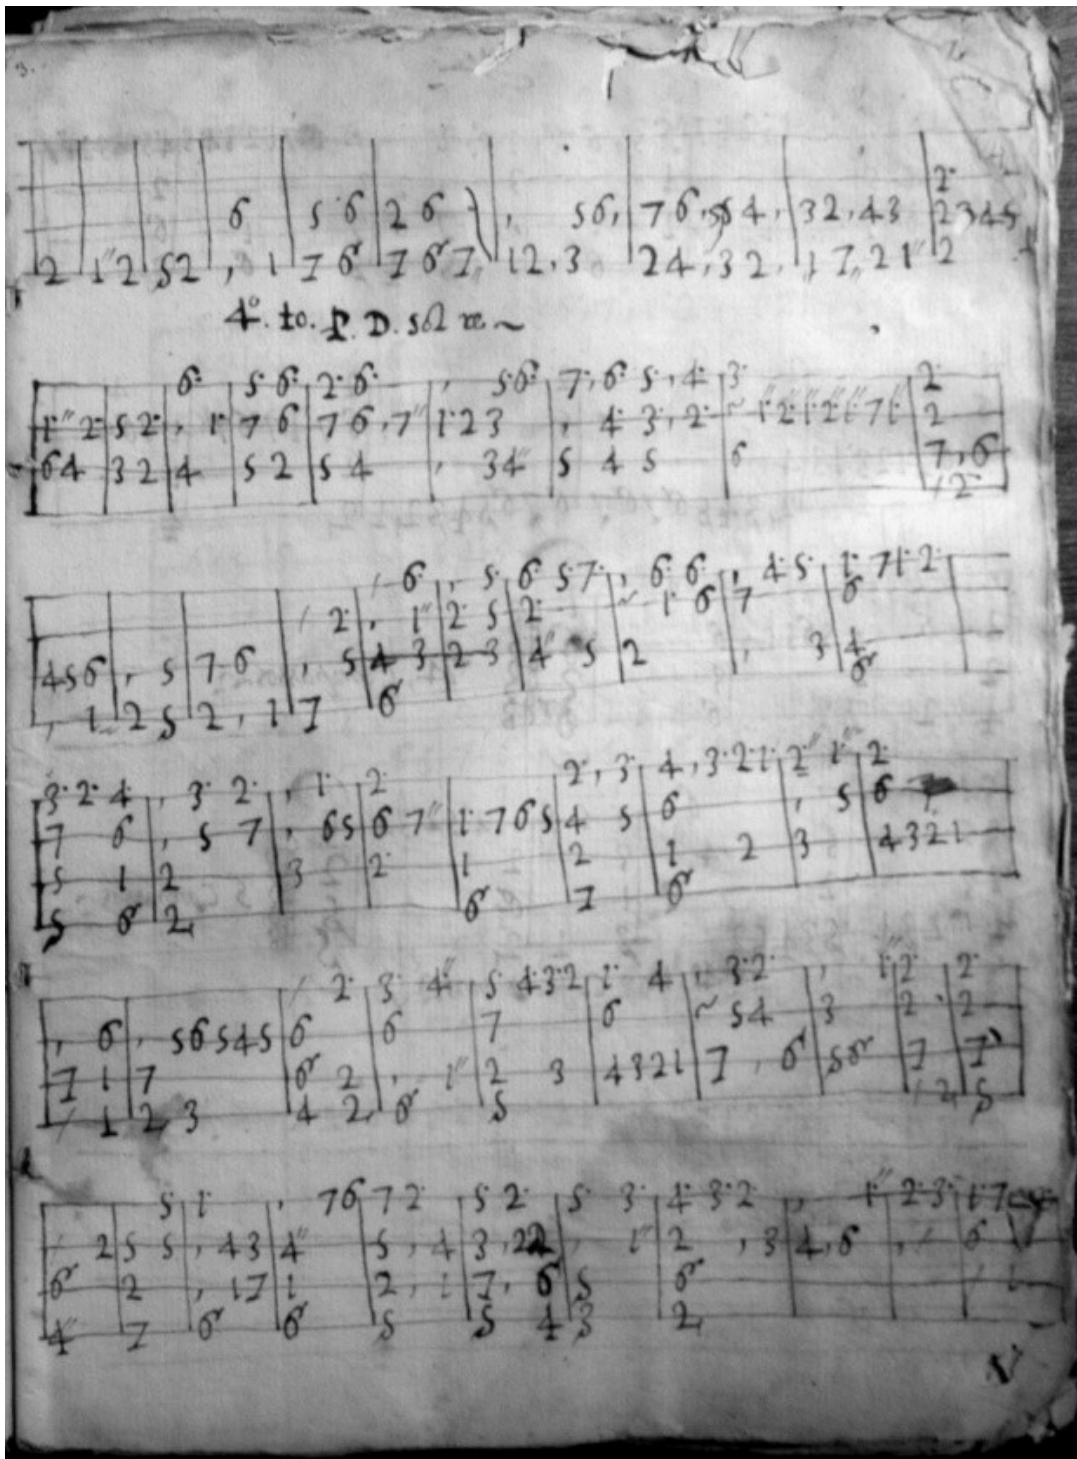 3.
6 5 6 2 6 , 56, 76,54, 32,43 2345
2 1"2 52 , 1 7 6 7 6 7, 12,3 24,32, 17,21" 2
4º. to. P. D. sol re ~
6: 5: 6: 2: 6: , 5:6: 7:, 6: 5:, 4: 3: 2:
1:" 2: 5 2: , 1: 7 6 7 6, 7" 1: 2 3 , 4: 3:, 2: ~ 1:"2:1:"2:1:"71: 2
64 32 4 5 2 5 4 , 34" 5 4 5 6 7, 6
/ 2:
/ 6: , 5: 6: 5 7: , 6: 6: , 4: 5: 1: 7 1: 2:
/ 2: , 1:" 2: 5 2: ~ 1: 6 7 6
456 , 5 7 6 , 5 4 3 2 3 4" 5 2 , 3 4
, 1 2 5 2, 1 7 6 6
3: 2: 4: , 3: 2: , 1: 2: 2:, 3: 4, 3: 2: 1: 2:" 1:" 2:
7 6 , 5 7 , 65 6 7" 1: 765 4 5 6 , 5 6
5 1 2 3 2 1 2 1 2 3 4321
5 6 2 6 7 6
/ 2: 3: 4:" 5: 4:3:2 1: 4 , 3:2: , 1:" 2: 2:
, 6 , 56545 6 6 7 6 ~ 54 3 2 2
7 1 7 6 2 , 1" 2 3 4321 7 , 6 56 7 7
/ 1 2 3 4 2 6 5 / 2 5
5: 1: , 76 7 2: 5: 2: 5: 3: 4: 3: 2 , 1:" 2: 3: 1: 7
/ 2 5 5 , 43 4" 5, 4 3, 2 , 1" 2 , 3 4, 6 , / 6
6 2 , 17 1 2, 1 7, 6 5 6 / 1
4" 7 6 6 5 5 4 3 2